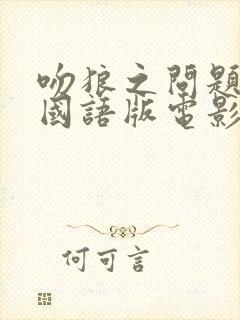 吻狼之問題
國語版電影
何可言